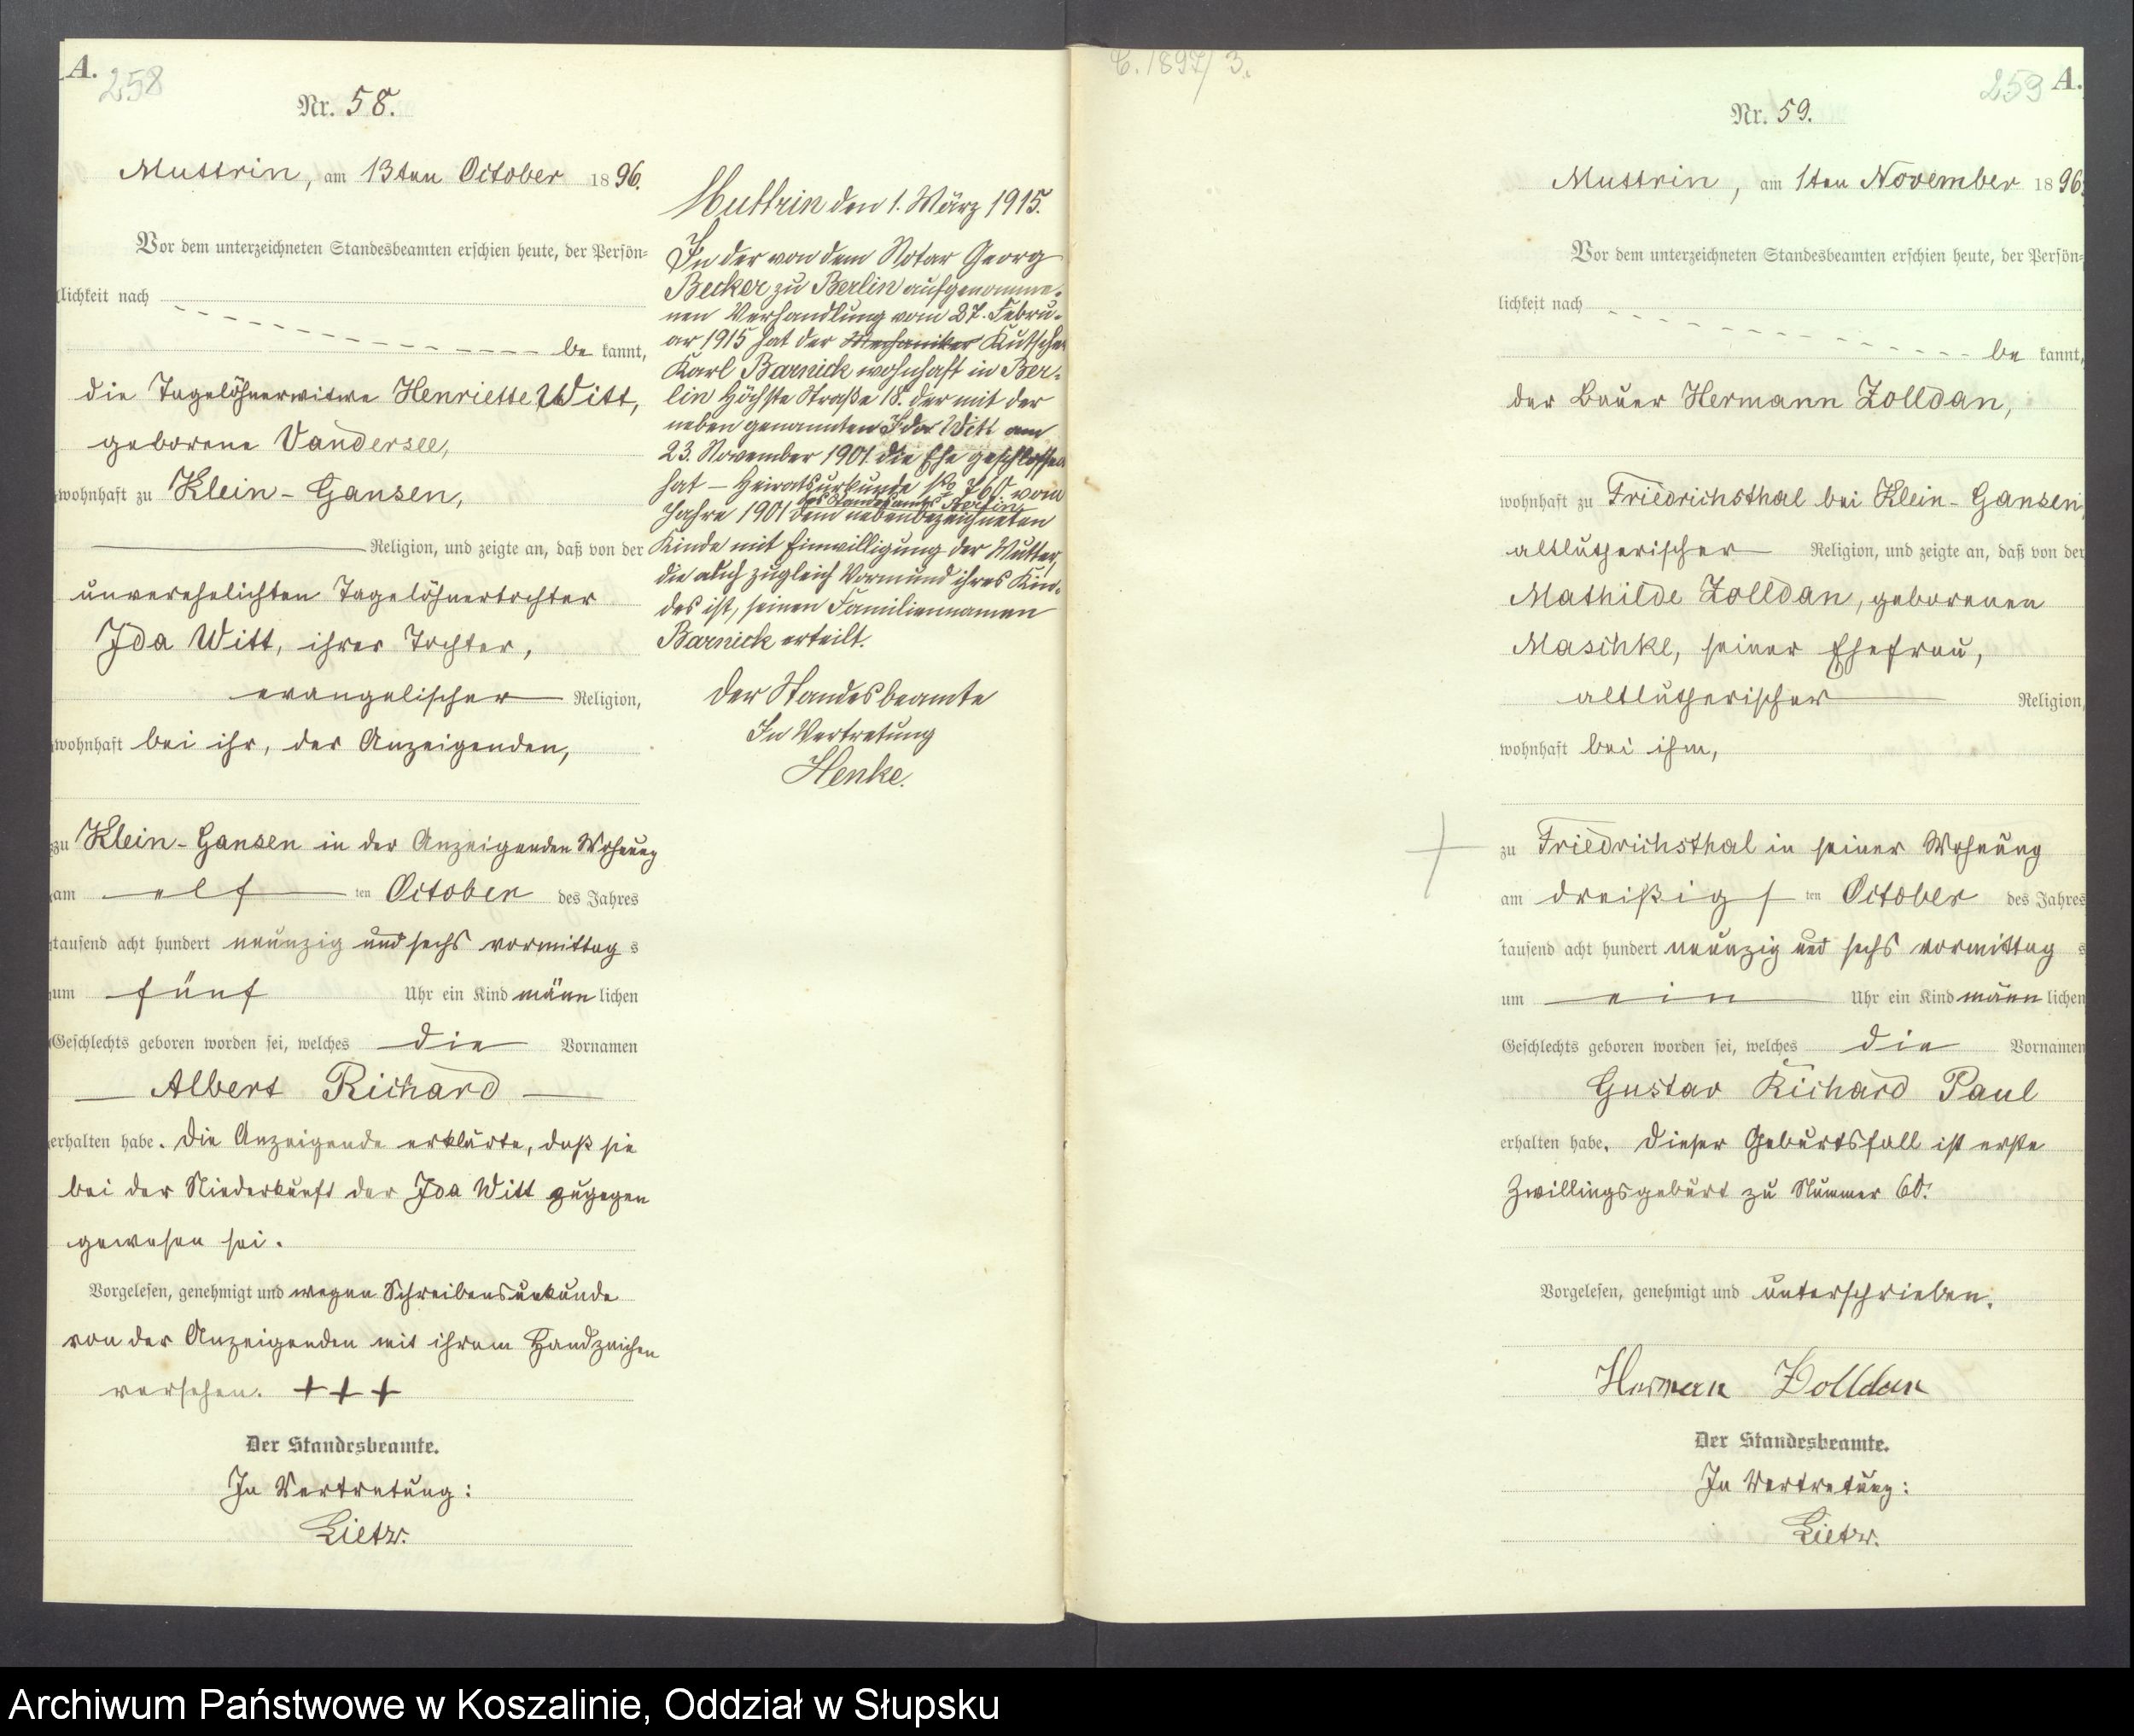 A.
258
Nr. 58.
Muttrin, am 13ten October 1896.
Vor dem unterzeichneten Standesbeamten erschien heute, der Persön-
lichkeit nach
be kannt,
die Tagelöhnerwitwe Henriette Witt,
geborene Vandersee,
wohnhaft zu Klein-Gansen,
Religion, und zeigte an, daß von der
unverehelichten Tagelöhnertochter
Ida Witt, ihrer Tochter,
evangelischer Religion,
wohnhaft bei ihr, der Anzeigenden,
zu Klein-Gansen in der Anzeigenden Wohnung
am elf ten October des Jahres
tausend acht hundert neunzig und sechs vormittag s
um fünf Uhr ein Kind männ lichen
Geschlechts geboren worden sei, welches die Vornamen
Albert Richard
erhalten habe. Die Anzeigende erklärte, daß sie
bei der Niederkunft der Ida Witt zugegen
gewesen sei.
Vorgelesen, genehmigt und wegen Schreibensunkunde
von der Anzeigenden mit ihrem Handzeichen
versehen. + + +
Der Standesbeamte.
In Vertretung:
Lietz.
Muttrin den 1. März 1915.
In der von dem Notar Georg
Becker zu Berlin aufgenomme-
nen Verhandlung vom 27. Febru-
ar 1915 hat der Mechaniker Kutscher
Karl Barnick wohnhaft in Ber-
lin Höchste Straße 18. der mit der
neben genannten Ida Witt am
23. November 1901 die Ehe geschlossen
hat – Heiratsurkunde No 760. vom
des Standesamts Berlin
Jahre 1901 dem nebenbezeichneten
Kinde mit Einwilligung der Mutter,
die auch zugleich Vormund ihres Kin-
des ist, seinen Familiennamen
Barnick erteilt.
Der Standesbeamte
In Vertretung
Henke.
C. 1897/3.
259 A.
Nr. 59.
Muttrin, am 1ten November 1896.
Vor dem unterzeichneten Standesbeamten erschien heute, der Persön-
lichkeit nach
be kannt,
der Bauer Hermann Zolldan,
wohnhaft zu Friedrichsthal bei Klein-Gansen,
altlutherischer Religion, und zeigte an, daß von der
Mathilde Zolldan, geborenen
Maschke, seiner Ehefrau,
altlutherischer Religion,
wohnhaft bei ihm,
zu Friedrichsthal in seiner Wohnung
am dreißigs ten October des Jahres
tausend acht hundert neunzig und sechs vormittag s
um ein Uhr ein Kind männ lichen
Geschlechts geboren worden sei, welches die Vornamen
Gustav Richard Paul
erhalten habe. Dieser Geburtsfall ist erste
Zwillingsgeburt zu Nummer 60.
Vorgelesen, genehmigt und unterschrieben.
Herman Zolldan
Der Standesbeamte.
In Vertretung:
Lietz.
Archiwum Państwowe w Koszalinie, Oddział w Słupsku